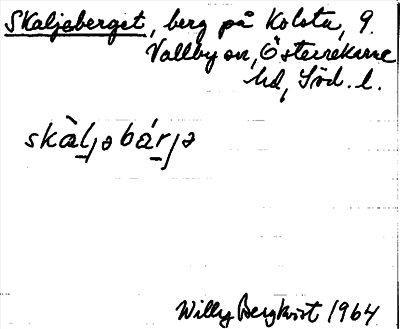 Skaljaberget, berg på Kolsta, g.
Vallby sn, Österrekarne
hd, Söd. l.
skàljəbárjə
Willy Bergkvist 1964